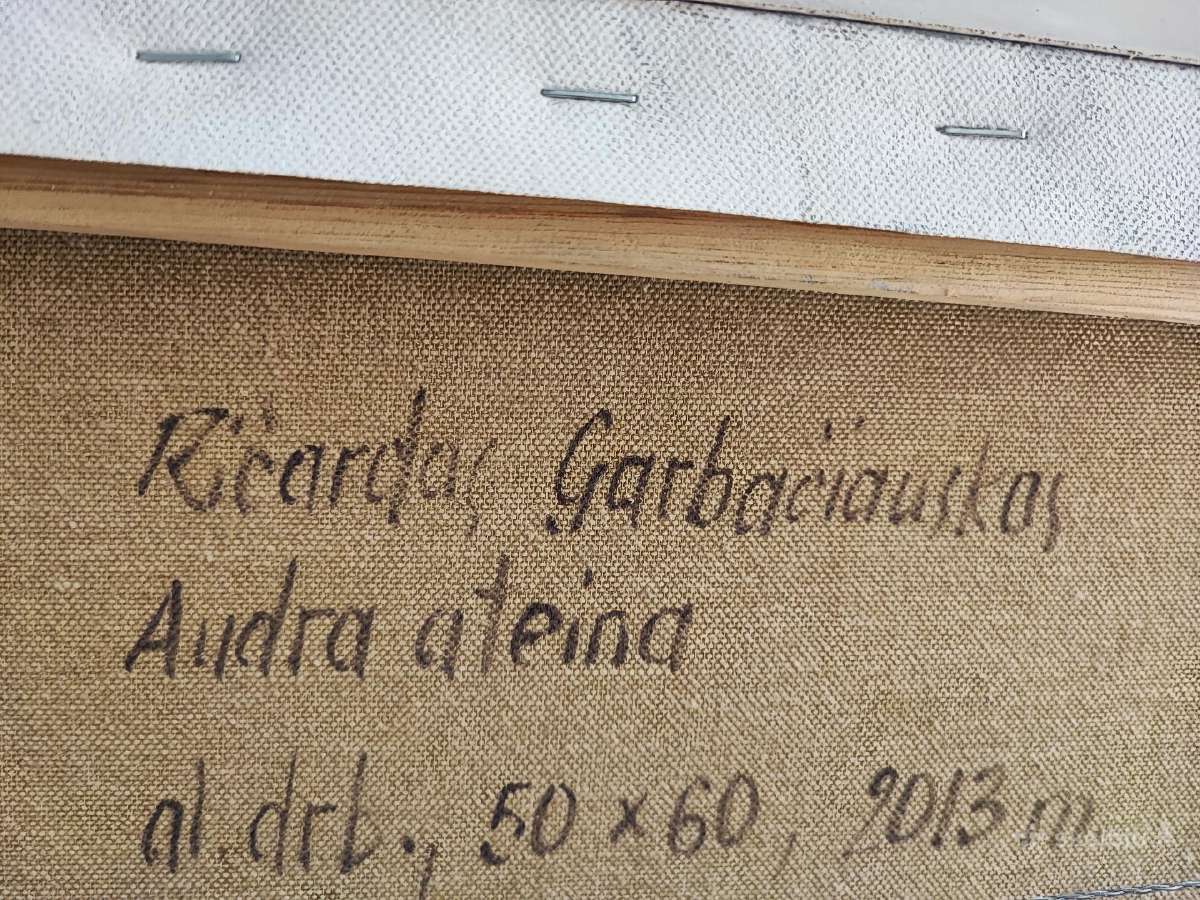 Ričardas Garbačiauskas
Audra ateina
al. drb., 50 x 60, 2013 m.